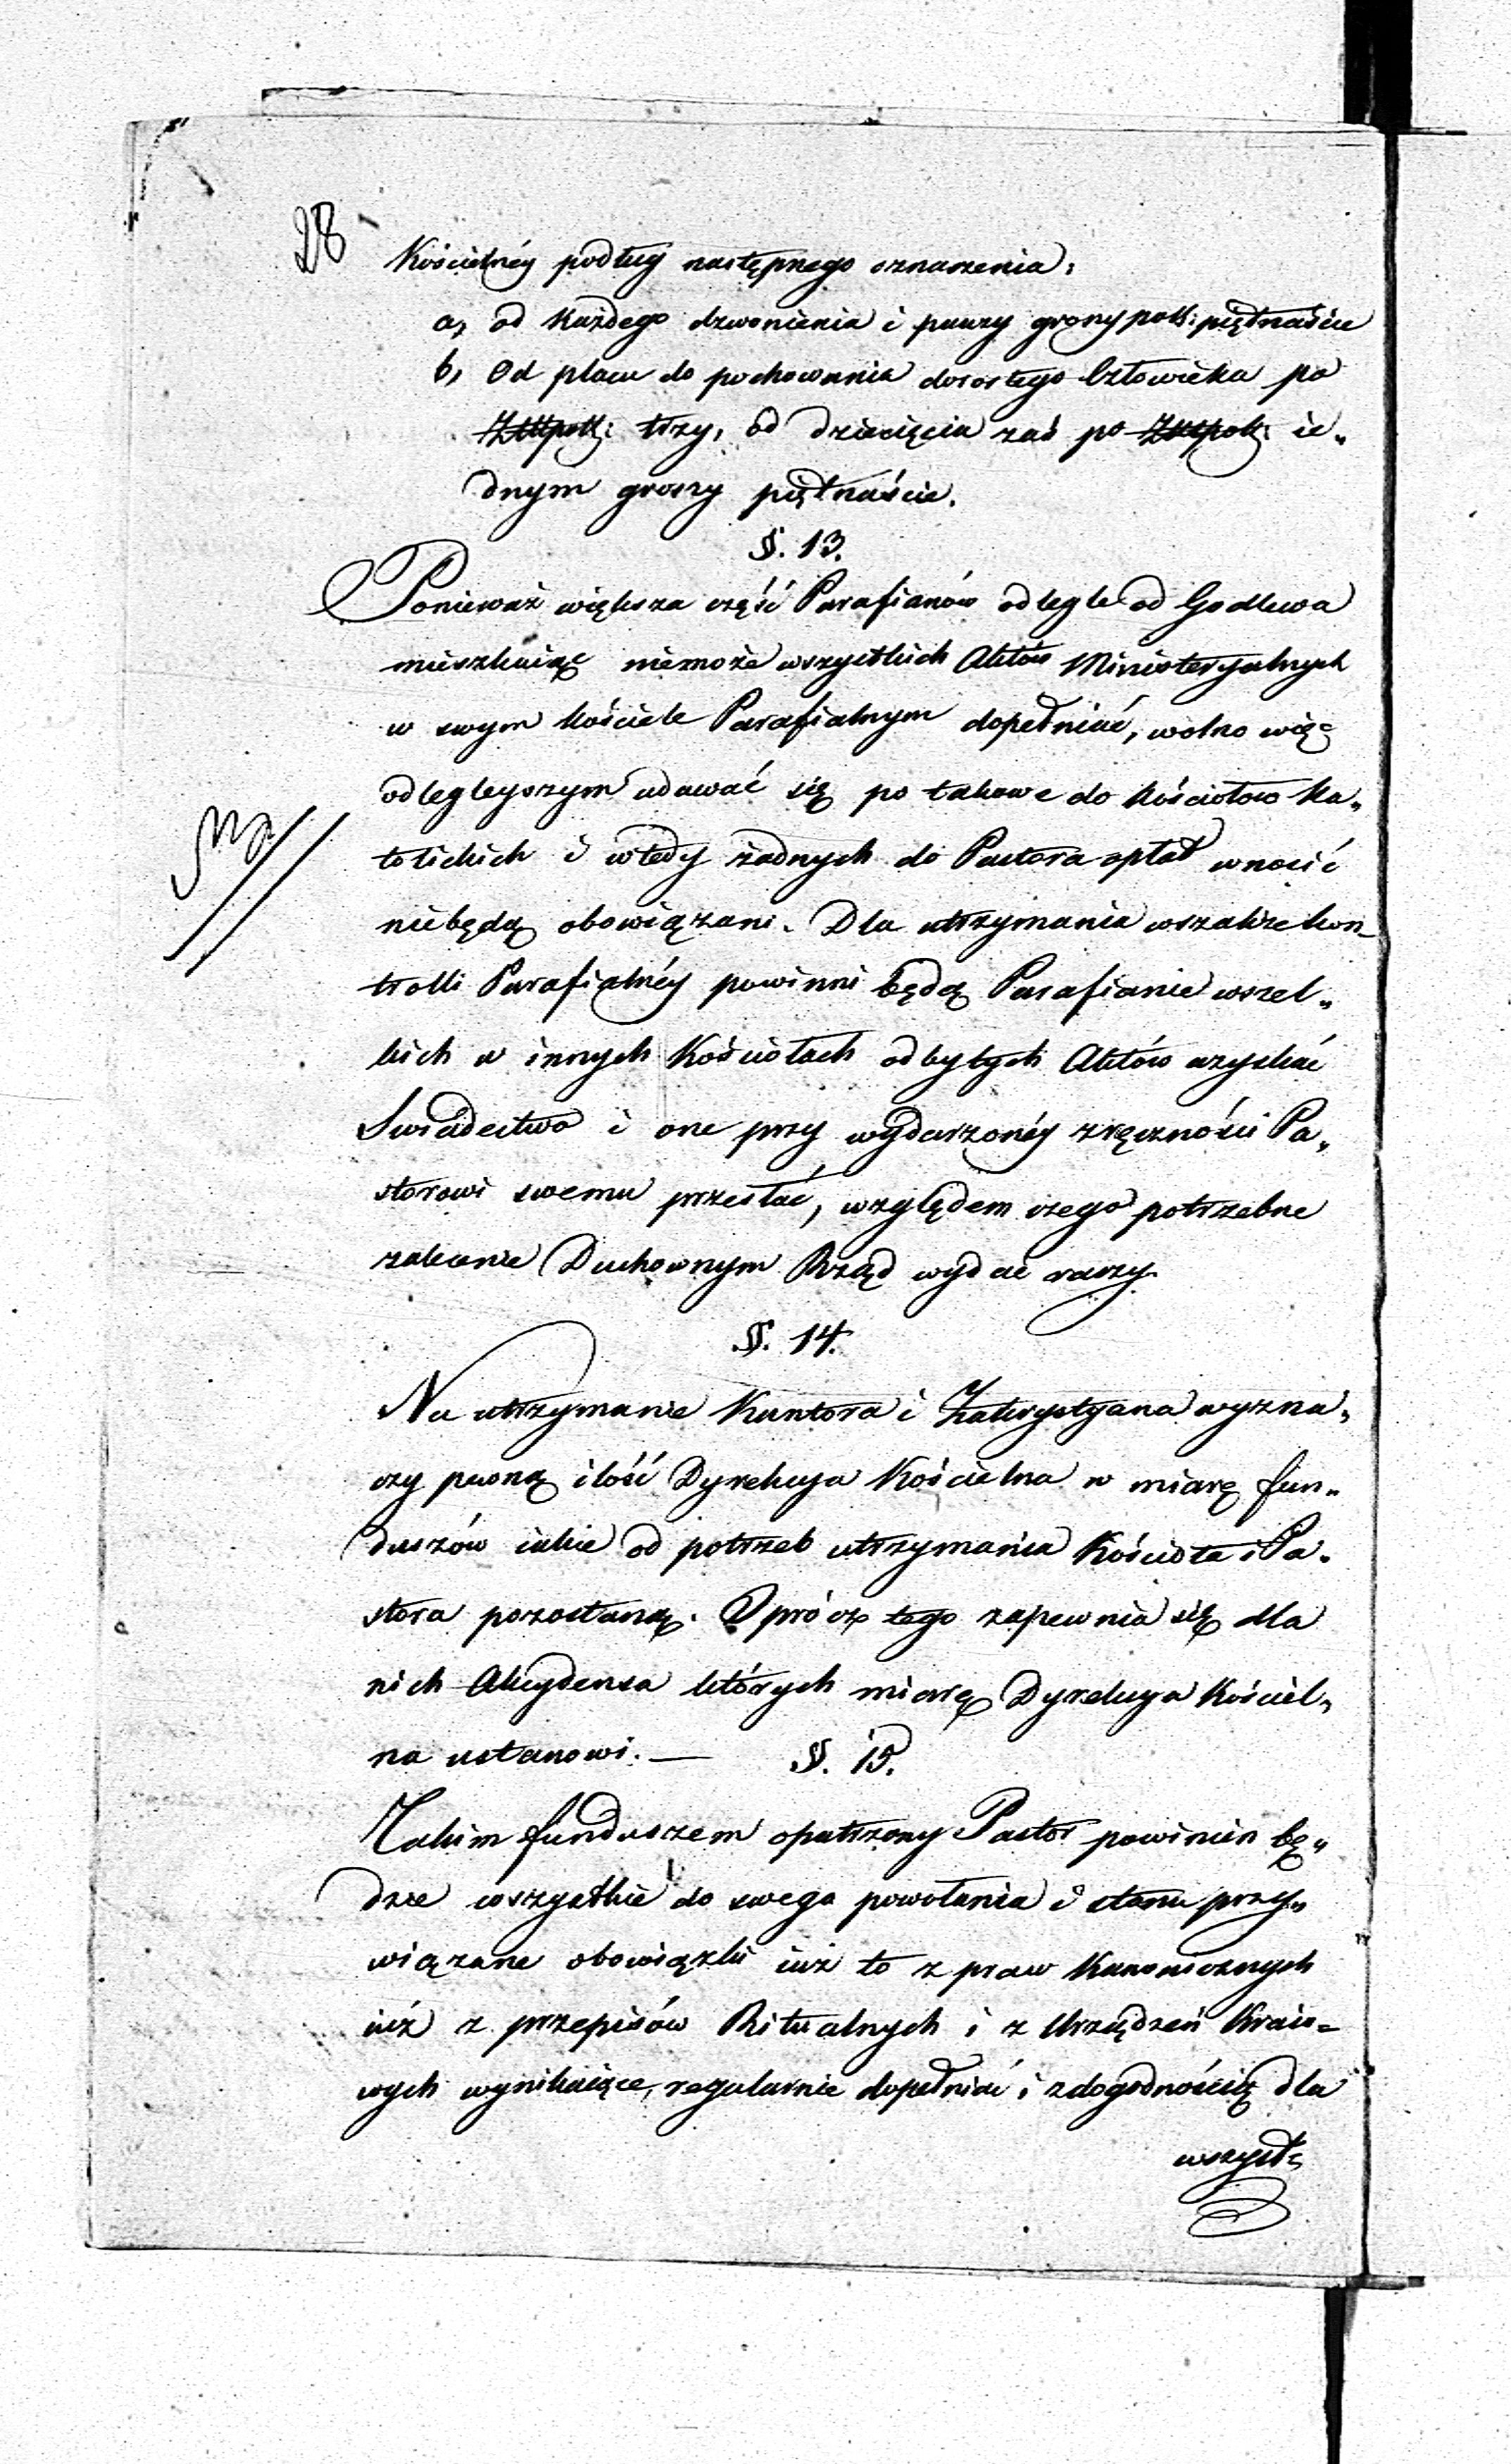 28
Kościelnéy podług następnego oznaczenia:
a, od każdego dzwonienia i pauzy groszy polk: piętnaście
b, Od placu do pochowania dorosłego Człowieka po
Złtpolk: trzy, od dziecięcia zaś po Złtpolk: ie„
dnym groszy piętnaście.
§. 13.
Ponieważ większa część Parafianów odlegle od Godlewa
mieszkaiąc niemoże wszystkich Aktów Ministeryalnych
w swym kościele Parafialnym dopełniać, wolno więc
odlegleyszym udawać się po takowe do kościołow Ka„
tolickich i wtedy żadnych do Pastora opłat wnosić
niebędą obowiązani. Dla utrzymania wszakże kon„
trolli Parafialnéy powinni będą Parafianie wszel„
kich w innych Kościołach odbytych Aktów uzyskać
Swiadectwo i one przy wydarzonéy zręczności Pa„
storowi swemu przesłać, względem czego potrzebne
zalecenie Duchownym Rząd wydać raczy.
§. 14.
Na utrzymanie Kantora i Zakrystyana wyzna„
czy pewną ilość Dyrekcya Kościelna w miarę fun„
duszów iakie od potrzeb utrzymania Kościoła i Pa„
stora pozostaną. Oprócz tego zapewnia się dla
nich Akcydensa których miarę Dyrekcya Kościel„
na ustanowi. — §. 15.
Takim funduszem opatrzony Pastor powinien bę„
dzie wszystkie do swego powołania i stanu przy„
wiązane obowiązki iuż to z praw Kanonicznych
iuż z przepisów Ritualnych i z Urządzeń Kraio„
wych wynikaiące, regularnie dopełniać i z dogodnością dla
wszyst„